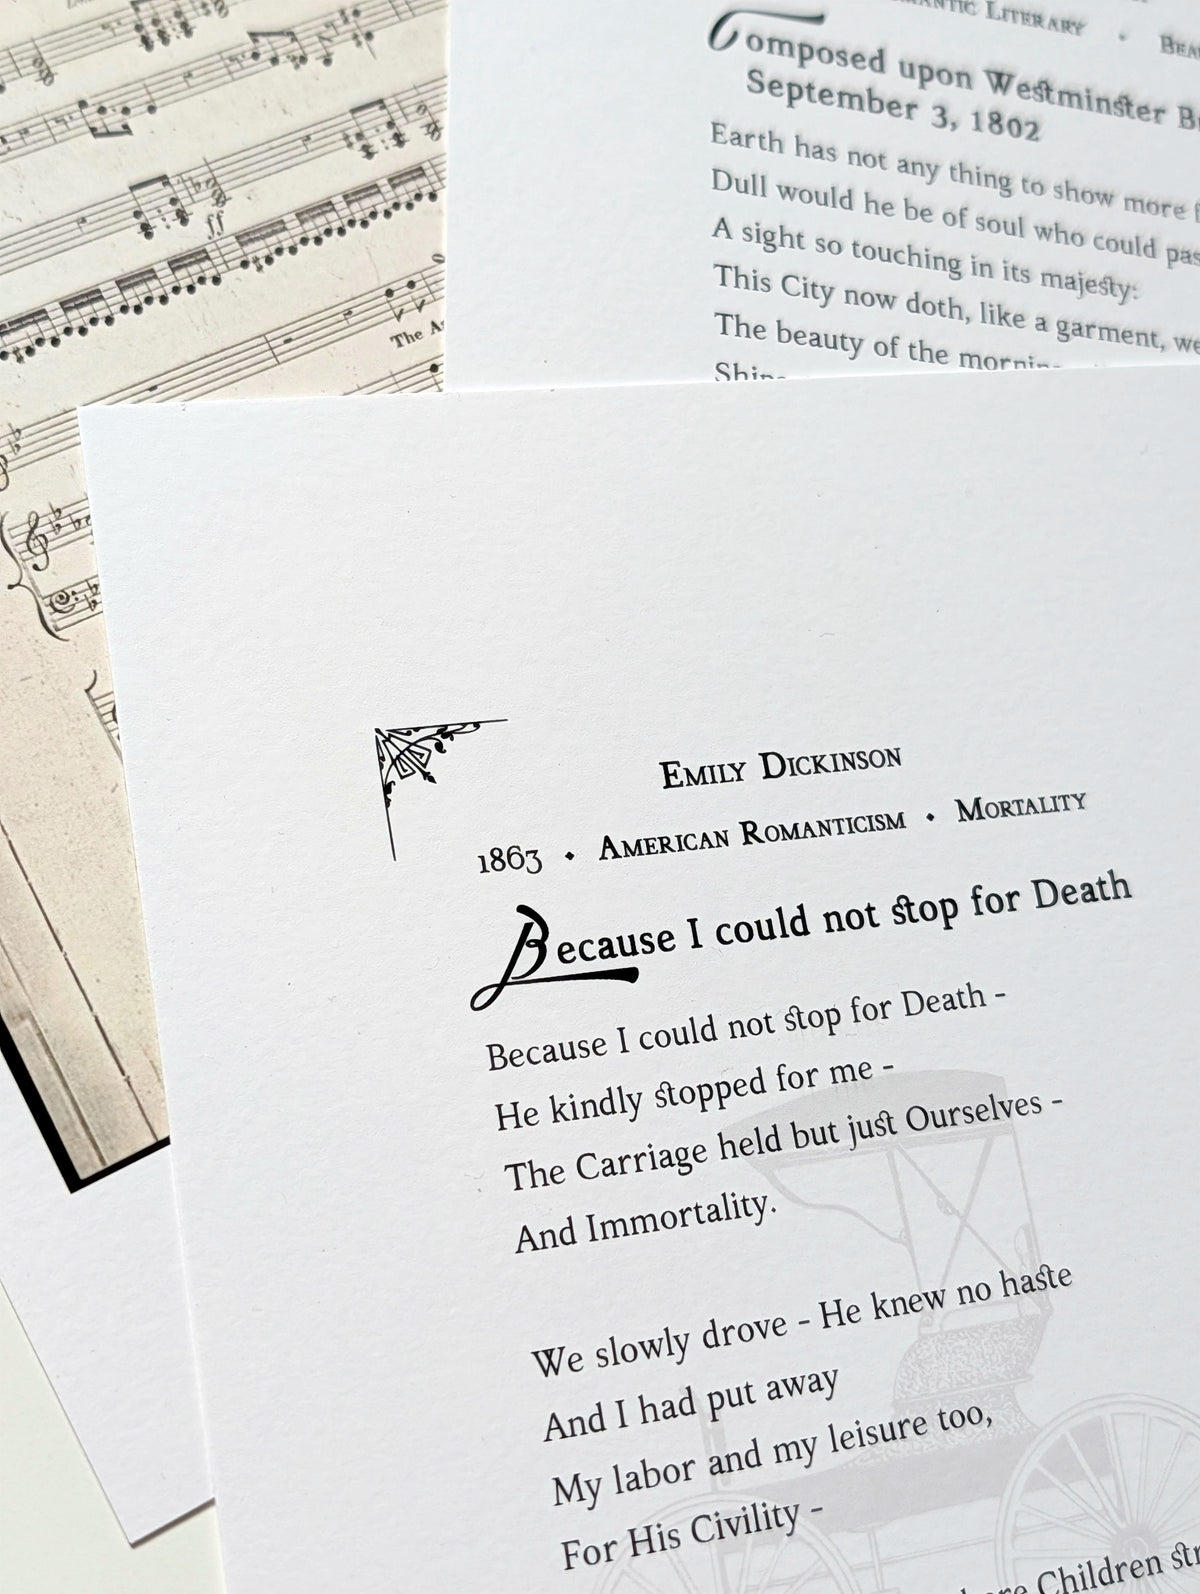 Literary • 
Composed upon Westminster
September 3, 1802
Earth has not any thing to show more
Dull would he be of soul who could
A sight so touching in its majesty:
This City now doth, like a garment,
The beauty of the
ff
The
Emily Dickinson
1863 • American Romanticism • Mortality
Because I could not stop for Death
Because I could not stop for Death -
He kindly stopped for me -
The Carriage held but just Ourselves -
And Immortality.
We slowly drove - He knew no haste
And I had put away
My labor and my leisure too,
For His Civility -
Children